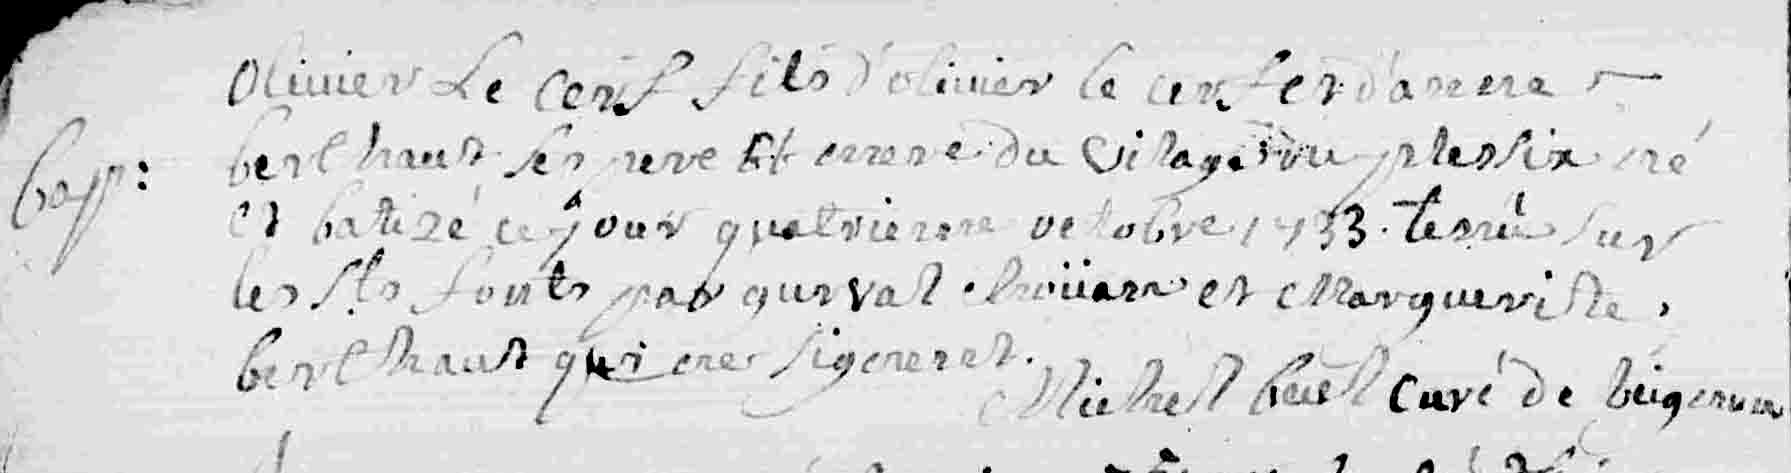 Olivier Le Cerf fils d'olivier le cerf et d'anne
bap: berthaut ses pere Et mere du vilage du plessix né
et batizé ce jour quatrieme octobre 1733. tenu sur
les sts fonts par gurval et Margueritte
berthaut qui ne signenet.
Michel curé de